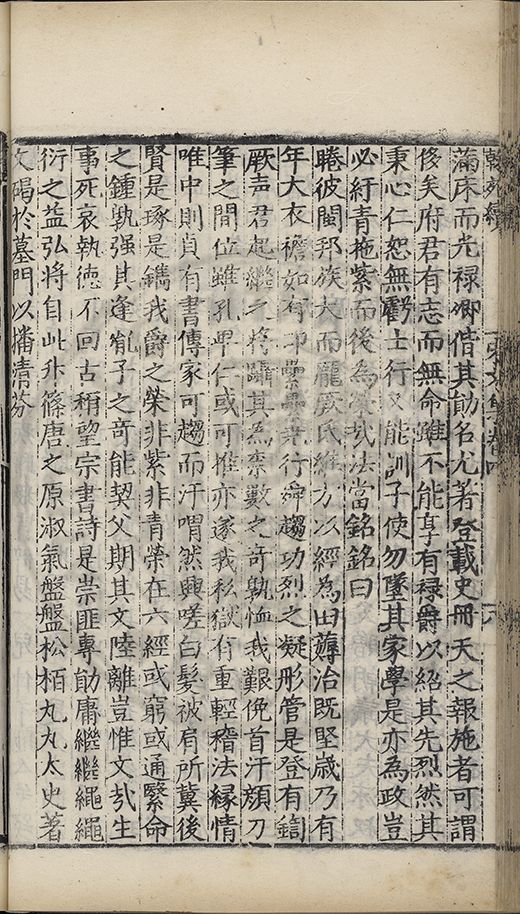 滿床而光祿卿偕其勛名尤著登載史冊天之報施者可謂
後矣府君有志而無命雖不能享有祿爵以紹其先烈然其
秉心仁恕無虧士行又能訓子使勿墜其家學是亦為政豈
必紆青拖紫而後為榮哉法當銘銘曰
睠彼閩邦族大而龐厥氏維方以經為田薅治既堅歲乃有
年大衣襜如有印纍纍舜趨功烈之凝形管是登有鑄
厥声君起繼之將躡其為柰數之奇孰恤我艱俛首汗顏刀
筆之間位雖孔卑仁或可推亦遂我私獄有重輕稽法緣情
唯中則貞有書傳家可趨而汙喟然興嗟白髮被肩所冀後
賢是琢是鐫我爵之榮非紫非青榮在六經或窮或通繄命
之鍾孰强其逢胤子之奇能契父期其文陸離豈惟文哉生
事死哀執徳不回古稱望宗書詩是崇匪專勛庸繼繼繩繩
衍之益弘將自此升篠唐之原淑氣盤盤松栢丸丸太史著
文碣於墓門以播清芬